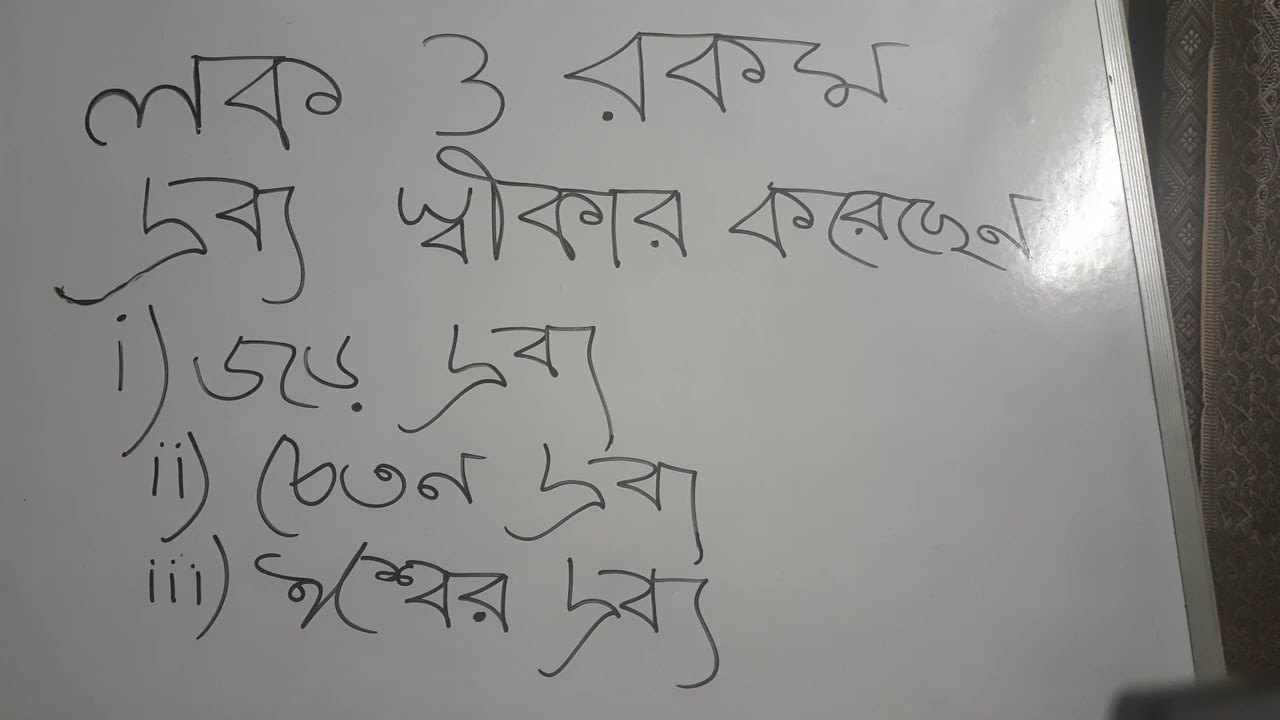 লক 3 রকম
দ্রব্য স্বীকার করেছেন
i) জড় দ্রব্য
ii) চেতন দ্রব্য
iii) ঈশ্বর দ্রব্য